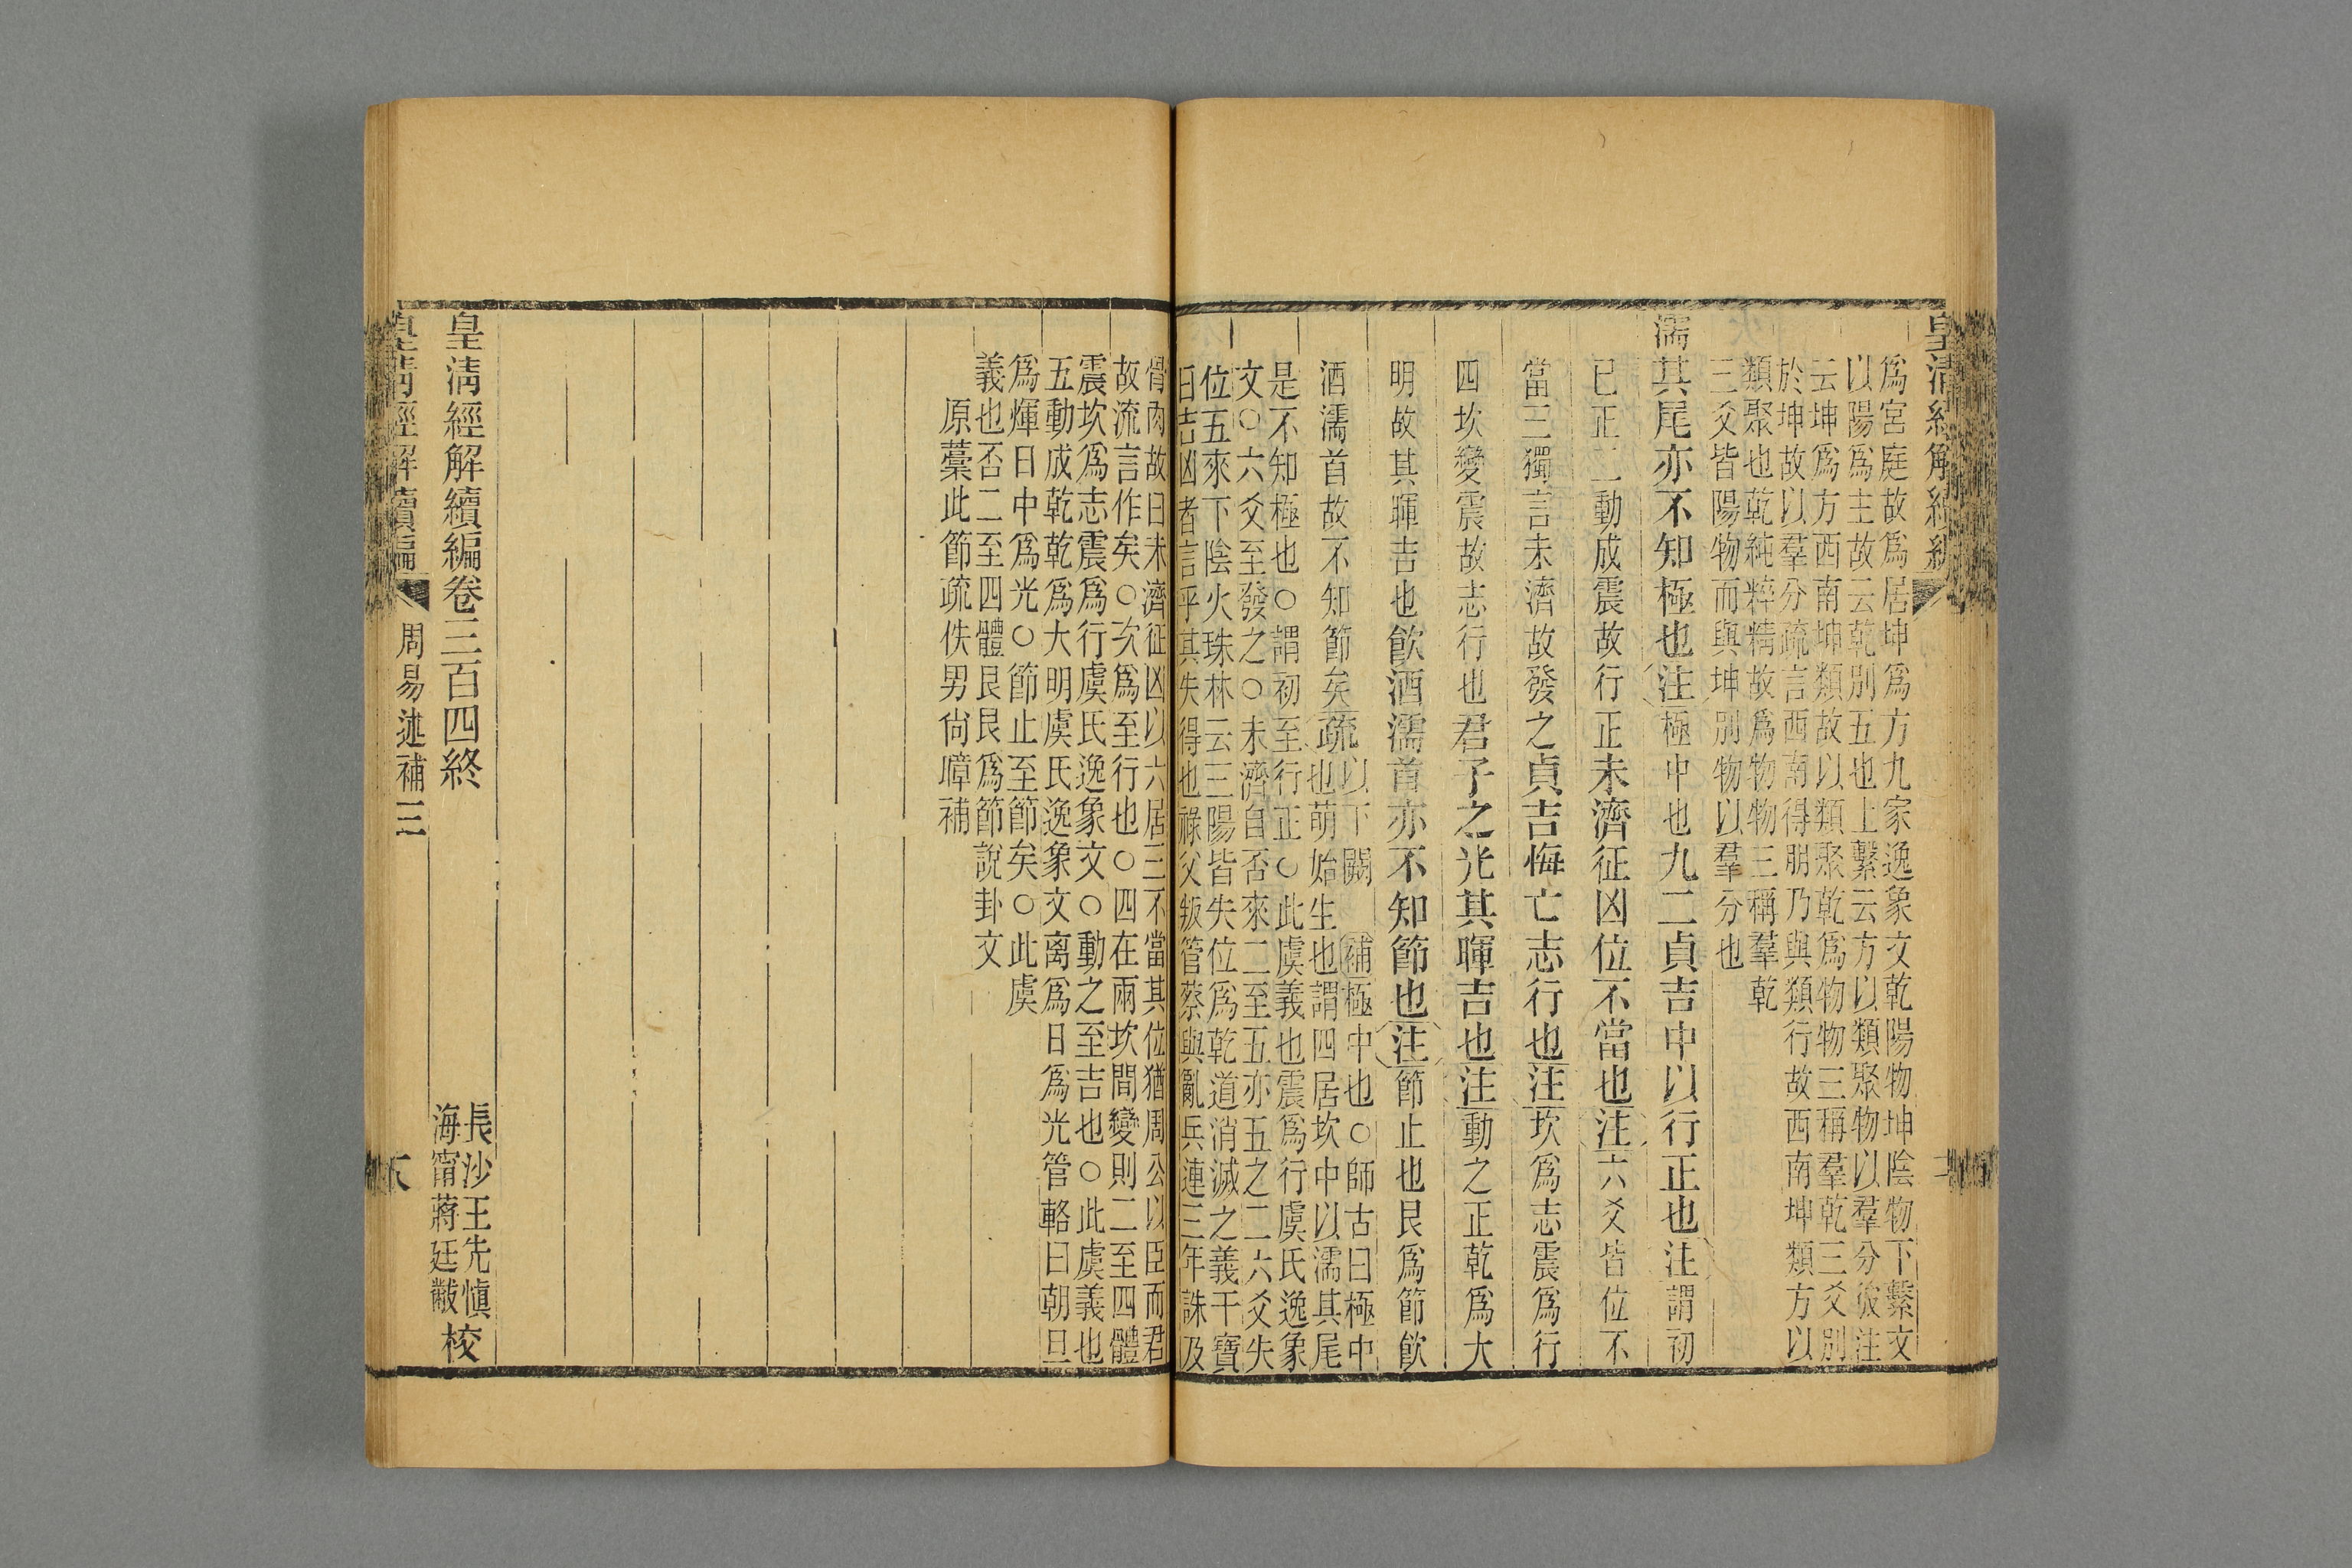 皇清經解續編
爲宮庭故爲居坤爲方九家逸象文乾陽物坤陰物下繫文
以陽爲主故云乾別五也上繫云方以類聚物以羣分彼注
云坤爲方西南坤類故以類聚乾爲物物三稱羣乾三爻別
於坤故以羣分疏言西南得朋乃與類行故西南坤類方以
類聚也乾純粹精故爲物物三稱羣乾
三爻皆陽物而與坤別物以羣分也
濡其尾亦不知極也注極中也九二貞吉中以行正也注謂初
已正二動成震故行正未濟征凶位不當也注六爻皆位不
當三獨言未濟故發之貞吉悔亡志行也注坎爲志震爲行
四坎變震故志行也君子之光其暉吉也注動之正乾爲大
明故其暉吉也飮酒濡首亦不知節也注節止也艮爲節飮
酒濡首故不知節矣疏以下闕 補極中也○師古曰極中
也萌始生也謂四居坎中以濡其尾
是不知極也○謂初至行正○此虞義也震爲行虞氏逸象
文○六爻至發之○未濟自否來二至五亦五之二六爻失
位五來下陰火珠林云三陽皆失位爲乾道消滅之義干寶
曰吉凶者言乎其失得也祿父叛管蔡與亂兵連三年誅及
骨肉故曰未濟征凶以六居三不當其位猶周公以臣而君
故流言作矣○次爲至行也○四在兩坎間變則二至四體
震坎爲志震爲行虞氏逸象文○動之至吉也○此虞義也
五動成乾乾爲大明虞氏逸象文离爲日爲光管輅曰朝旦
爲煇日中爲光○節止至節矣○此虞
義也否二至四體艮艮爲節說卦文
原藁此節疏佚男尙暲補
皇淸經解續編卷三百四終
長沙王先愼
海甯蔣廷黻
校
皇清經解續編
周易述補三